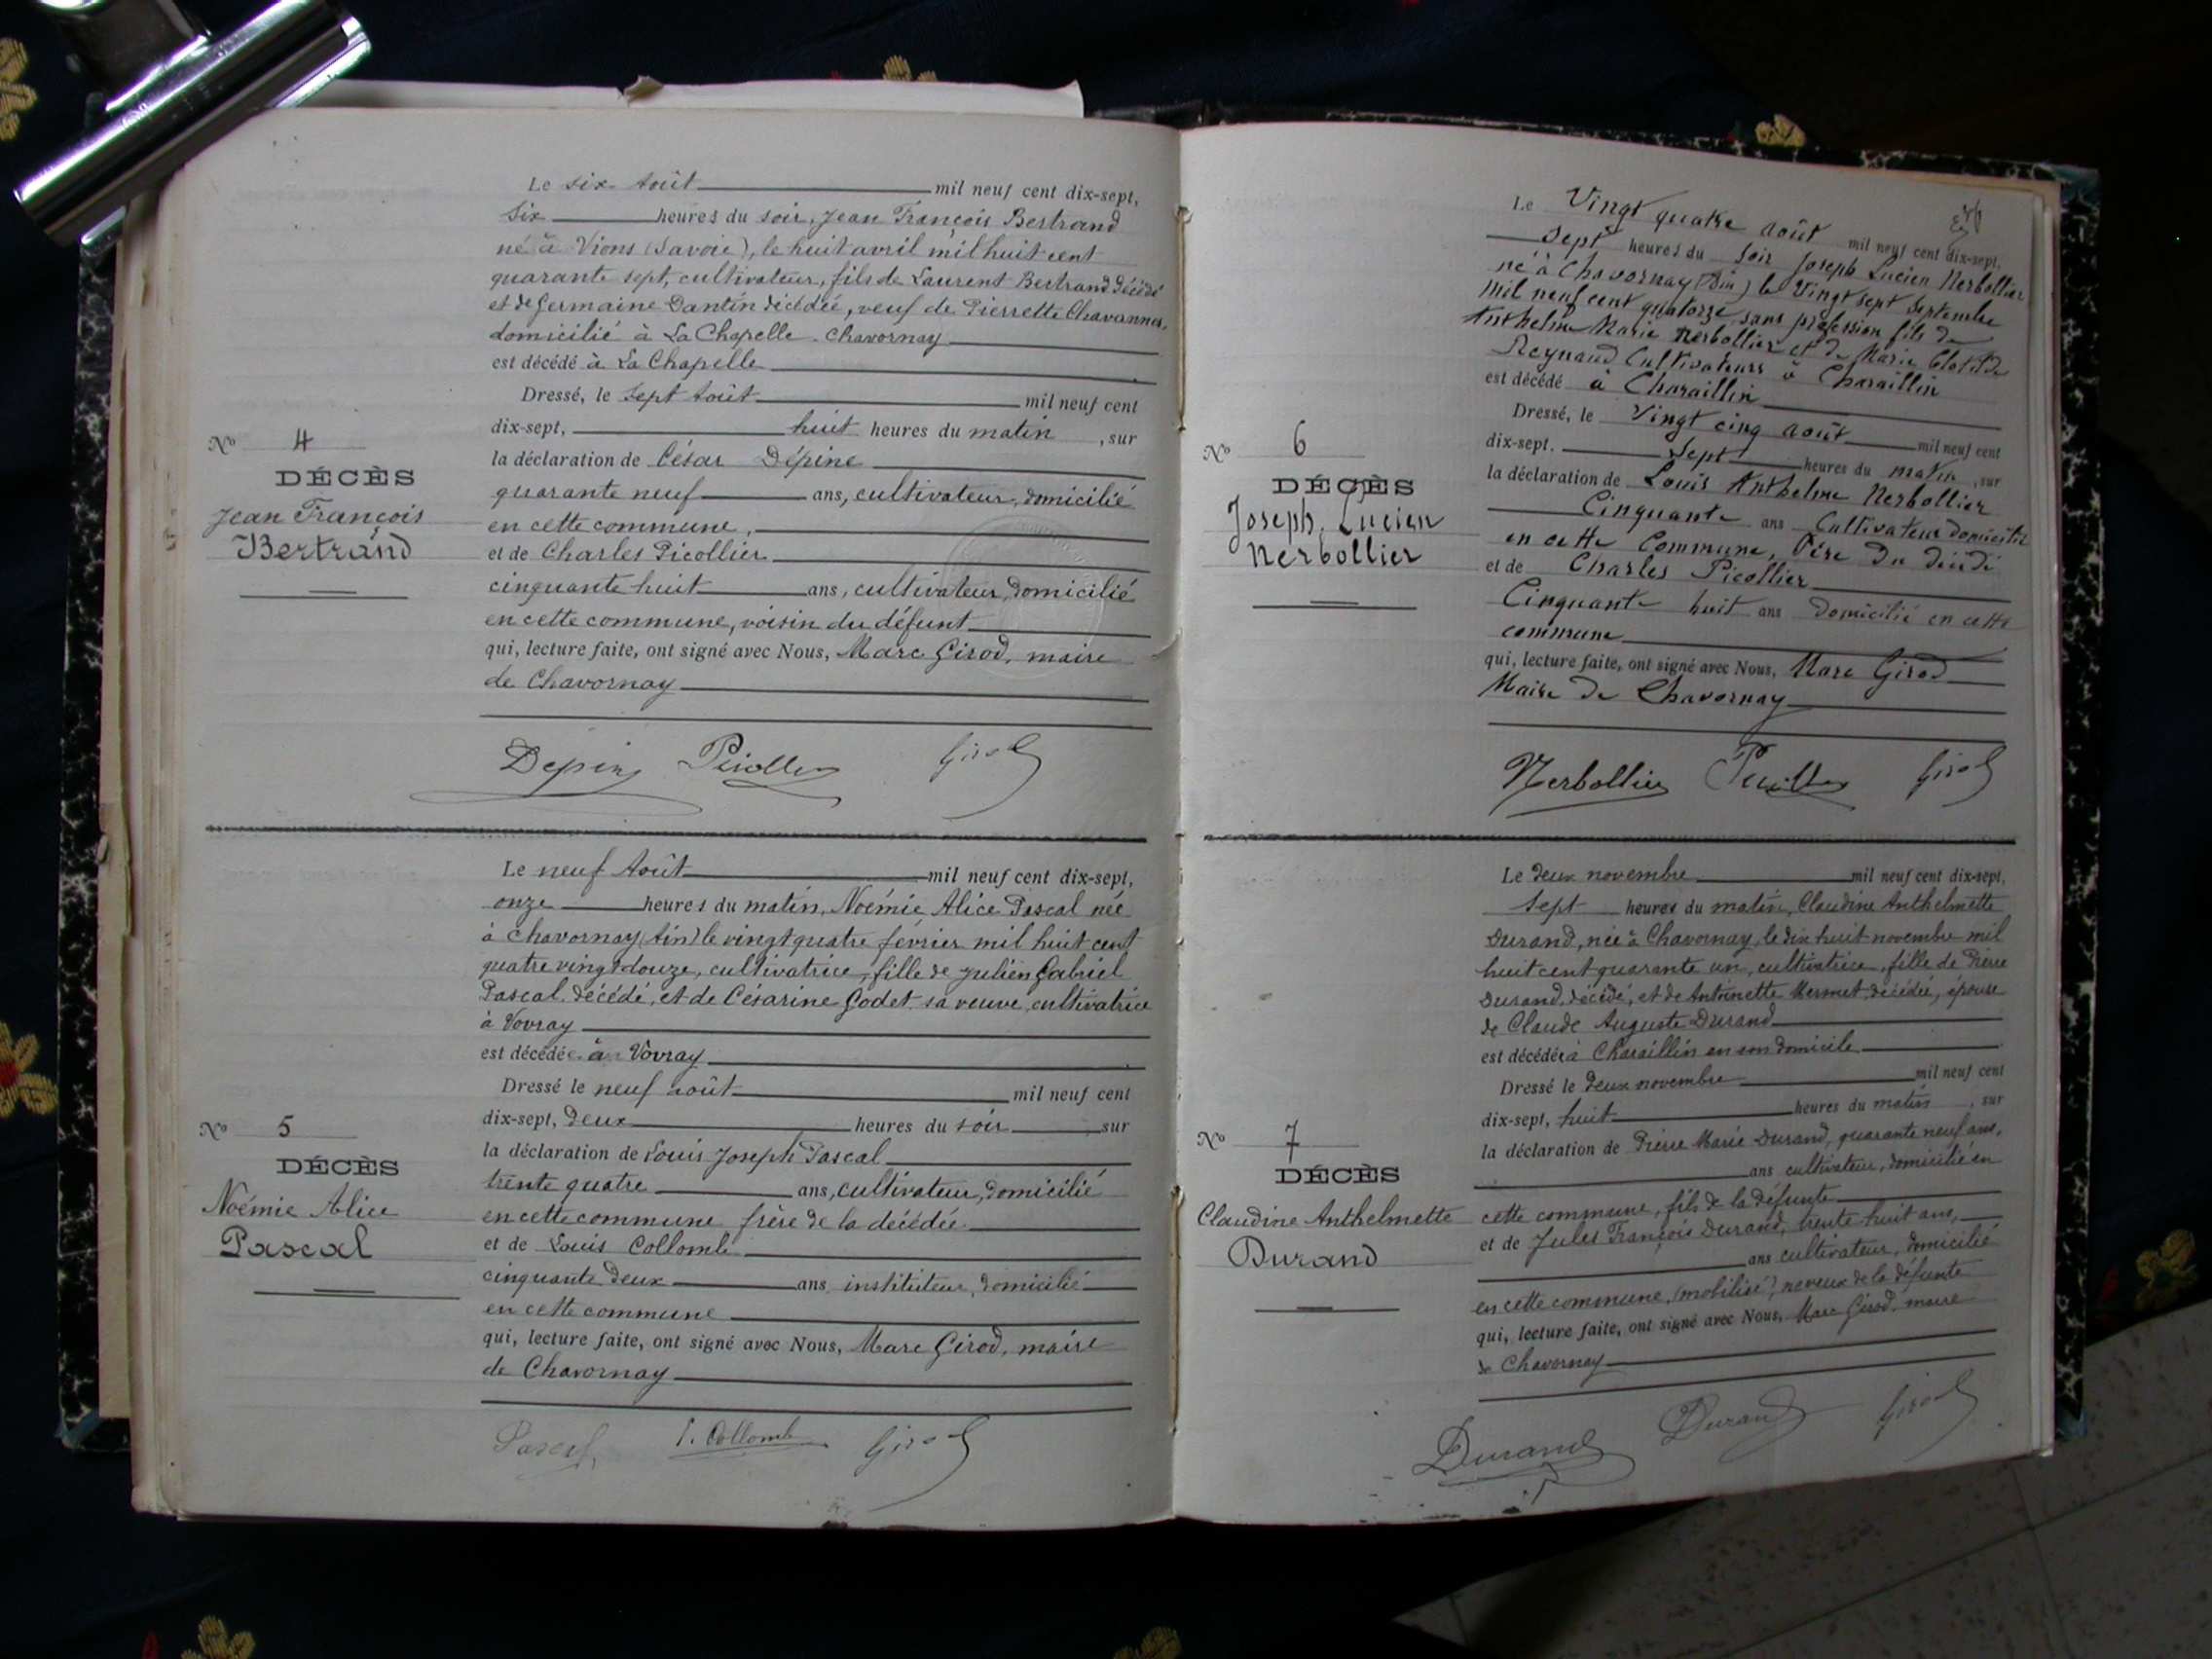 Le six Août mil neuf cent dix-sept,
Six heures du soir, Jean François Bertrand
né à Vions (Savoie), le huit avril mil huit cent
quarante sept, cultivateur, fils de Laurent Bertrand décédé
et de Germaine Dantin décédée, veuf de Pierrette Chavannes,
domicilié à La Chapelle. Chavornay
est décédé à La Chapelle
Dressé, le sept Août mil neuf cent
dix-sept, huit heures du matin, sur
la déclaration de César Dépine
quarante neuf ans, cultivateur, domicilié
en cette commune,
et de Charles Picollier
cinquante huit ans, cultivateur, domicilié
en cette commune, voisin du défunt
qui, lecture faite, ont signé avec Nous, Marc Girod, maire
de Chavornay
Nº 4
DÉCÈS
Jean François
Bertrand
Girod
Le neuf Août mil neuf cent dix-sept,
onze heures du matin, Noémie Alice Pascal née
à Chavornay (Ain) le vingt quatre février mil huit cent
quatre vingt douze, cultivatrice, fille de Julien Gabriel
Pascal, décédé, et de Césarine Godet sa veuve, cultivatrice
à Vovray
est décédée à Vovray
Dressé le neuf août mil neuf cent
dix-sept, deux heures du soir sur
la déclaration de Louis Joseph Pascal
trente quatre ans, cultivateur, domicilié
en cette commune frère de la décédée
et de Louis Collomb
cinquante deux ans, instituteur, domicilié
en cette commune
qui, lecture faite, ont signé avec Nous, Marc Girod, maire
de Chavornay
Nº 5
DÉCÈS
Noémie Alice
Pascal
Pascal L. Collomb Girod
Le Vingt quatre août mil neuf cent dix-sept,
Sept heures du soir Joseph Lucien Nerbollier
né à Chavornay (Ain) le Vingt sept Septembre
mil neuf cent quatorze, sans profession fils de
Anthelme Marie Nerbollier et de Marie Clotilde
Reynaud Cultivateurs à Charaillin
est décédé à Charaillin
Dressé, le Vingt cinq août mil neuf cent
dix-sept. Sept heures du matin, sur
la déclaration de Louis Anthelme Nerbollier
Cinquante ans Cultivateur domicilié
en cette Commune, Père du décédé
et de Charles Picollier
Cinquante huit ans domicilié en cette
commune
qui, lecture faite, ont signé avec Nous, Marc Girod
Maire de Chavornay
Nº 6
DÉCÈS
Joseph Lucien
Nerbollier
Nerbollier Girod
Le deux novembre mil neuf cent dix-sept,
Sept heures du matin, Claudine Anthelmette
Durand, née à Chavornay, le dix huit novembre mil
huit cent quarante un, cultivatrice, fille de Pierre
Durand, décédé, et de Antoinette Mermet, décédée, épouse
de Claude Auguste Durand
est décédée à Charaillin en son domicile
Dressé le deux novembre mil neuf cent
dix-sept, huit heures du matin, sur
la déclaration de Pierre Marie Durand, quarante neuf ans,
ans cultivateur, domicilié en
cette commune, fils de la défunte
et de Jules François Durand, trente huit ans,
ans cultivateur, domicilié
en cette commune, (mobilisé), neveux de la défunte
qui, lecture faite, ont signé avec Nous, Marc Girod, maire
de Chavornay
Nº 7
DÉCÈS
Claudine Anthelmette
Durand
Durand Durand Girod